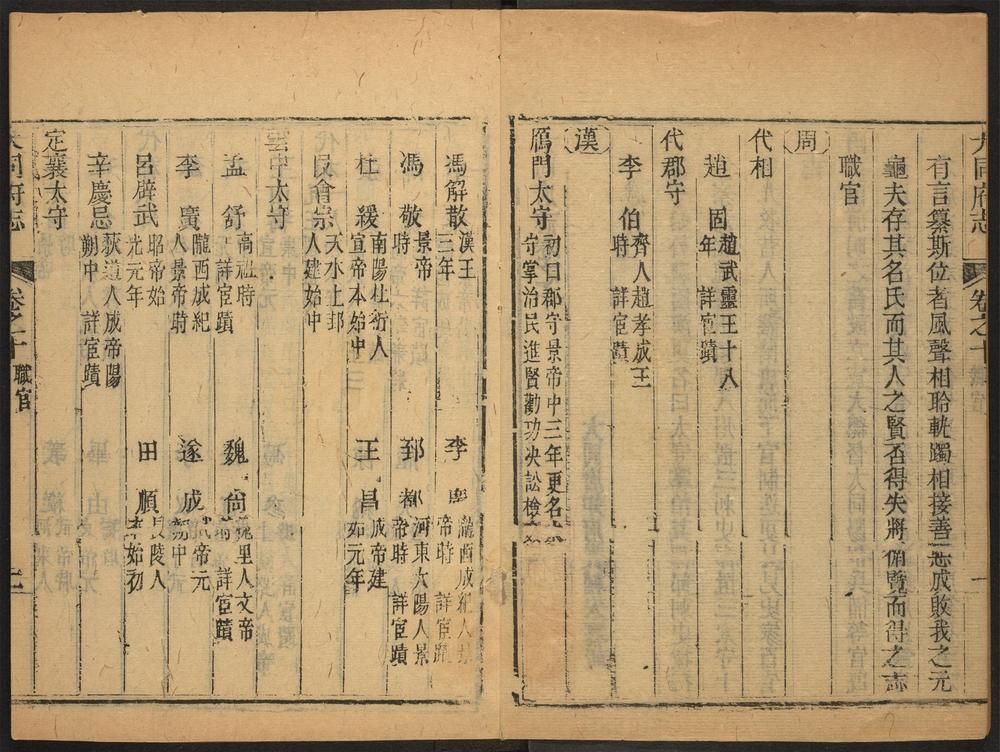 大同府志 卷之十 一
有言纂斯位者風聲相聆軌躅相接善志成敗我之元
龜夫存其名氏而其人之賢否得失將俯覽而得之志
職官
周
代相
趙固 趙武靈王十八年 詳宦蹟
代郡守
李伯 齊人趙孝成王時 詳宦蹟
漢
鴈門太守 初曰郡守景帝中三年更名 守掌治民進賢勸功決訟檢
馮解散 漢王三年 李 隴西成紀人景帝時 詳宦蹟
馮敬 景帝時 郅都 河東大陽人景帝時 詳宦蹟
杜緩 南陽杜衍人宣帝本始中 王昌 成帝建始元年
段會宗 天水上邽人建始中
雲中太守
孟舒 高祖時 詳宦蹟 魏尚 槐里人文帝時 詳宦蹟
李廣 隴西成紀人景帝時 遂成 武帝元朔中
呂辟武 昭帝始元元年 田順 長陵人本始初
辛慶忌 狄道人成帝陽朔中 詳宦蹟
定襄太守
大同府志 卷之十 職官 二